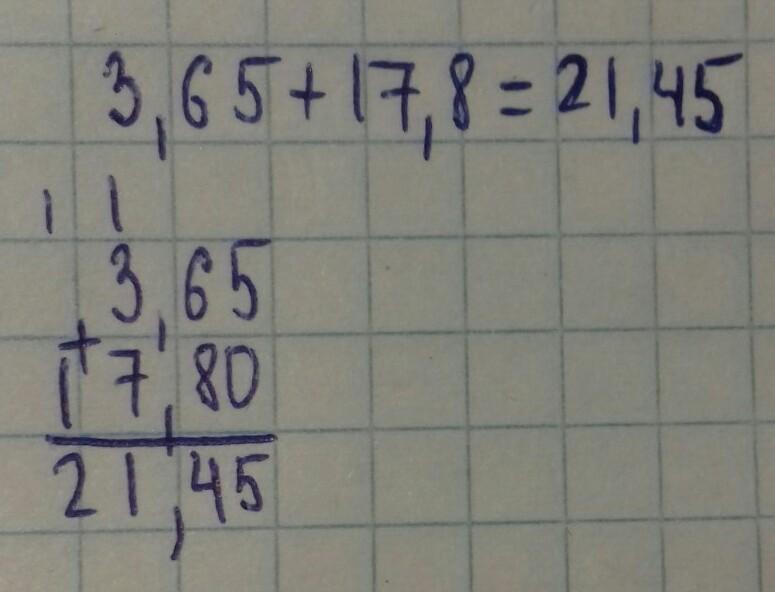 3,65+17,8=21,45
1 1
3,65
+
17,80
21,45